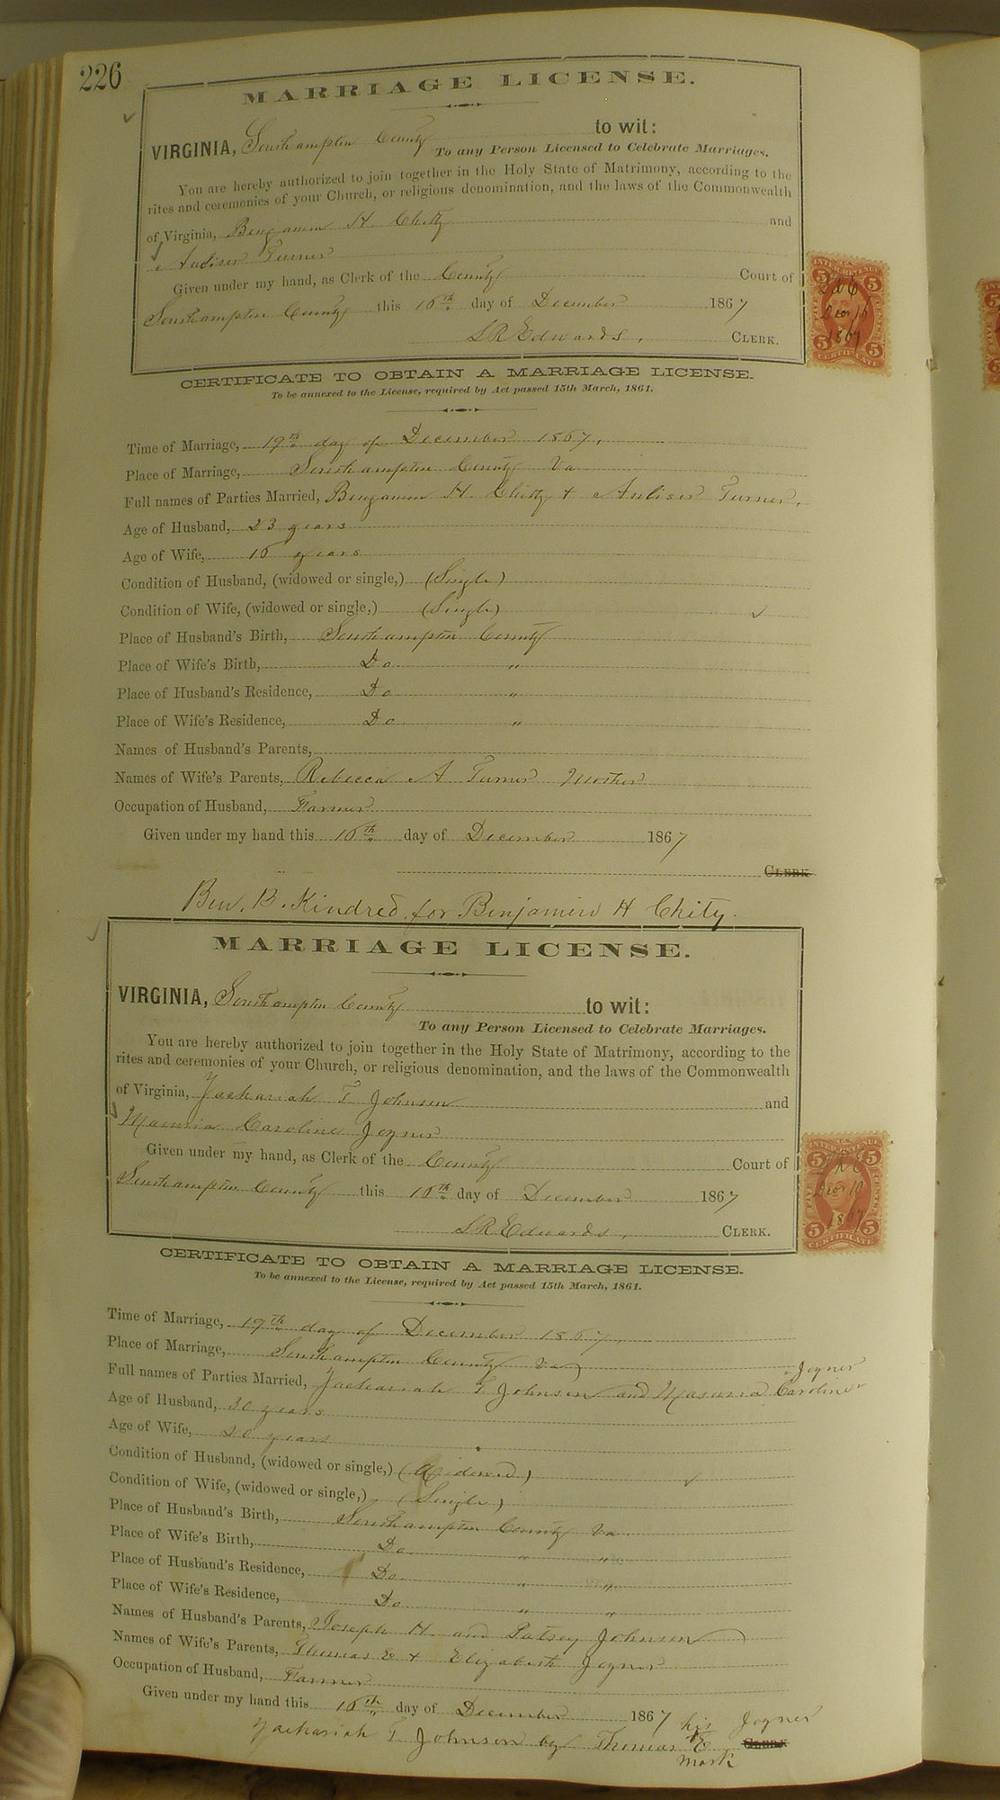 226
MARRIAGE LICENSE.
VIRGINIA, Southampton County to wit:
To any Person Licensed to Celebrate Marriages.
You are hereby authorized to join together in the Holy State of Matrimony, according to the
rites and ceremonies of your Church, or religious denomination, and the laws of the Commonwealth
of Virginia, Benjamin H. Chitty and
Turner
Given under my hand, as Clerk of the County Court of
Southampton County this 16th day of December 1867
LR Edwards, CLERK.
CERTIFICATE TO OBTAIN A MARRIAGE LICENSE.
To be annexed to the License, required by Act passed 15th March, 1861.
Time of Marriage, 19th day of December 1867,
Place of Marriage, Southampton County Va
Full names of Parties Married, Benjamin H. Chitty + Turner,
Age of Husband, 23 years
Age of Wife, years
Condition of Husband, (widowed or single,) (Single)
Condition of Wife, (widowed or single,) (Single)
Place of Husband's Birth, Southampton County
Place of Wife's Birth, Do "
Place of Husband's Residence, Do "
Place of Wife's Residence, Do "
Names of Husband's Parents,
Names of Wife's Parents, Rebecca A Turner Mother
Occupation of Husband, Farmer
Given under my hand this 16th day of December 1867
CLERK
Ben. B. Kindred for Benjamin H Chity.
MARRIAGE LICENSE.
VIRGINIA, Southampton County to wit:
To any Person Licensed to Celebrate Marriages.
You are hereby authorized to join together in the Holy State of Matrimony, according to the
rites and ceremonies of your Church, or religious denomination, and the laws of the Commonwealth
of Virginia, Zachariah T Johnson and
Caroline Joyner
Given under my hand, as Clerk of the County Court of
Southampton County this 16th day of December 1867
LR Edwards, CLERK.
CERTIFICATE TO OBTAIN A MARRIAGE LICENSE.
To be annexed to the License, required by Act passed 15th March, 1861.
Time of Marriage, 17th day of December 1867,
Place of Marriage, Southampton County Va
Full names of Parties Married, Zachariah T Johnson and Caroline Joyner
Age of Husband, 30 years
Age of Wife, 20 years
Condition of Husband, (widowed or single,) (Widowed)
Condition of Wife, (widowed or single,) (Single)
Place of Husband's Birth, Southampton County Va
Place of Wife's Birth, Do " "
Place of Husband's Residence, Do " "
Place of Wife's Residence, Do " "
Names of Husband's Parents, Joseph H. and Patsey Johnson
Names of Wife's Parents, Thomas E + Elizabeth Joyner
Occupation of Husband, Farmer
Given under my hand this 16th day of December 1867
Zachariah T Johnson by Thomas E his mark Joyner
CLERK